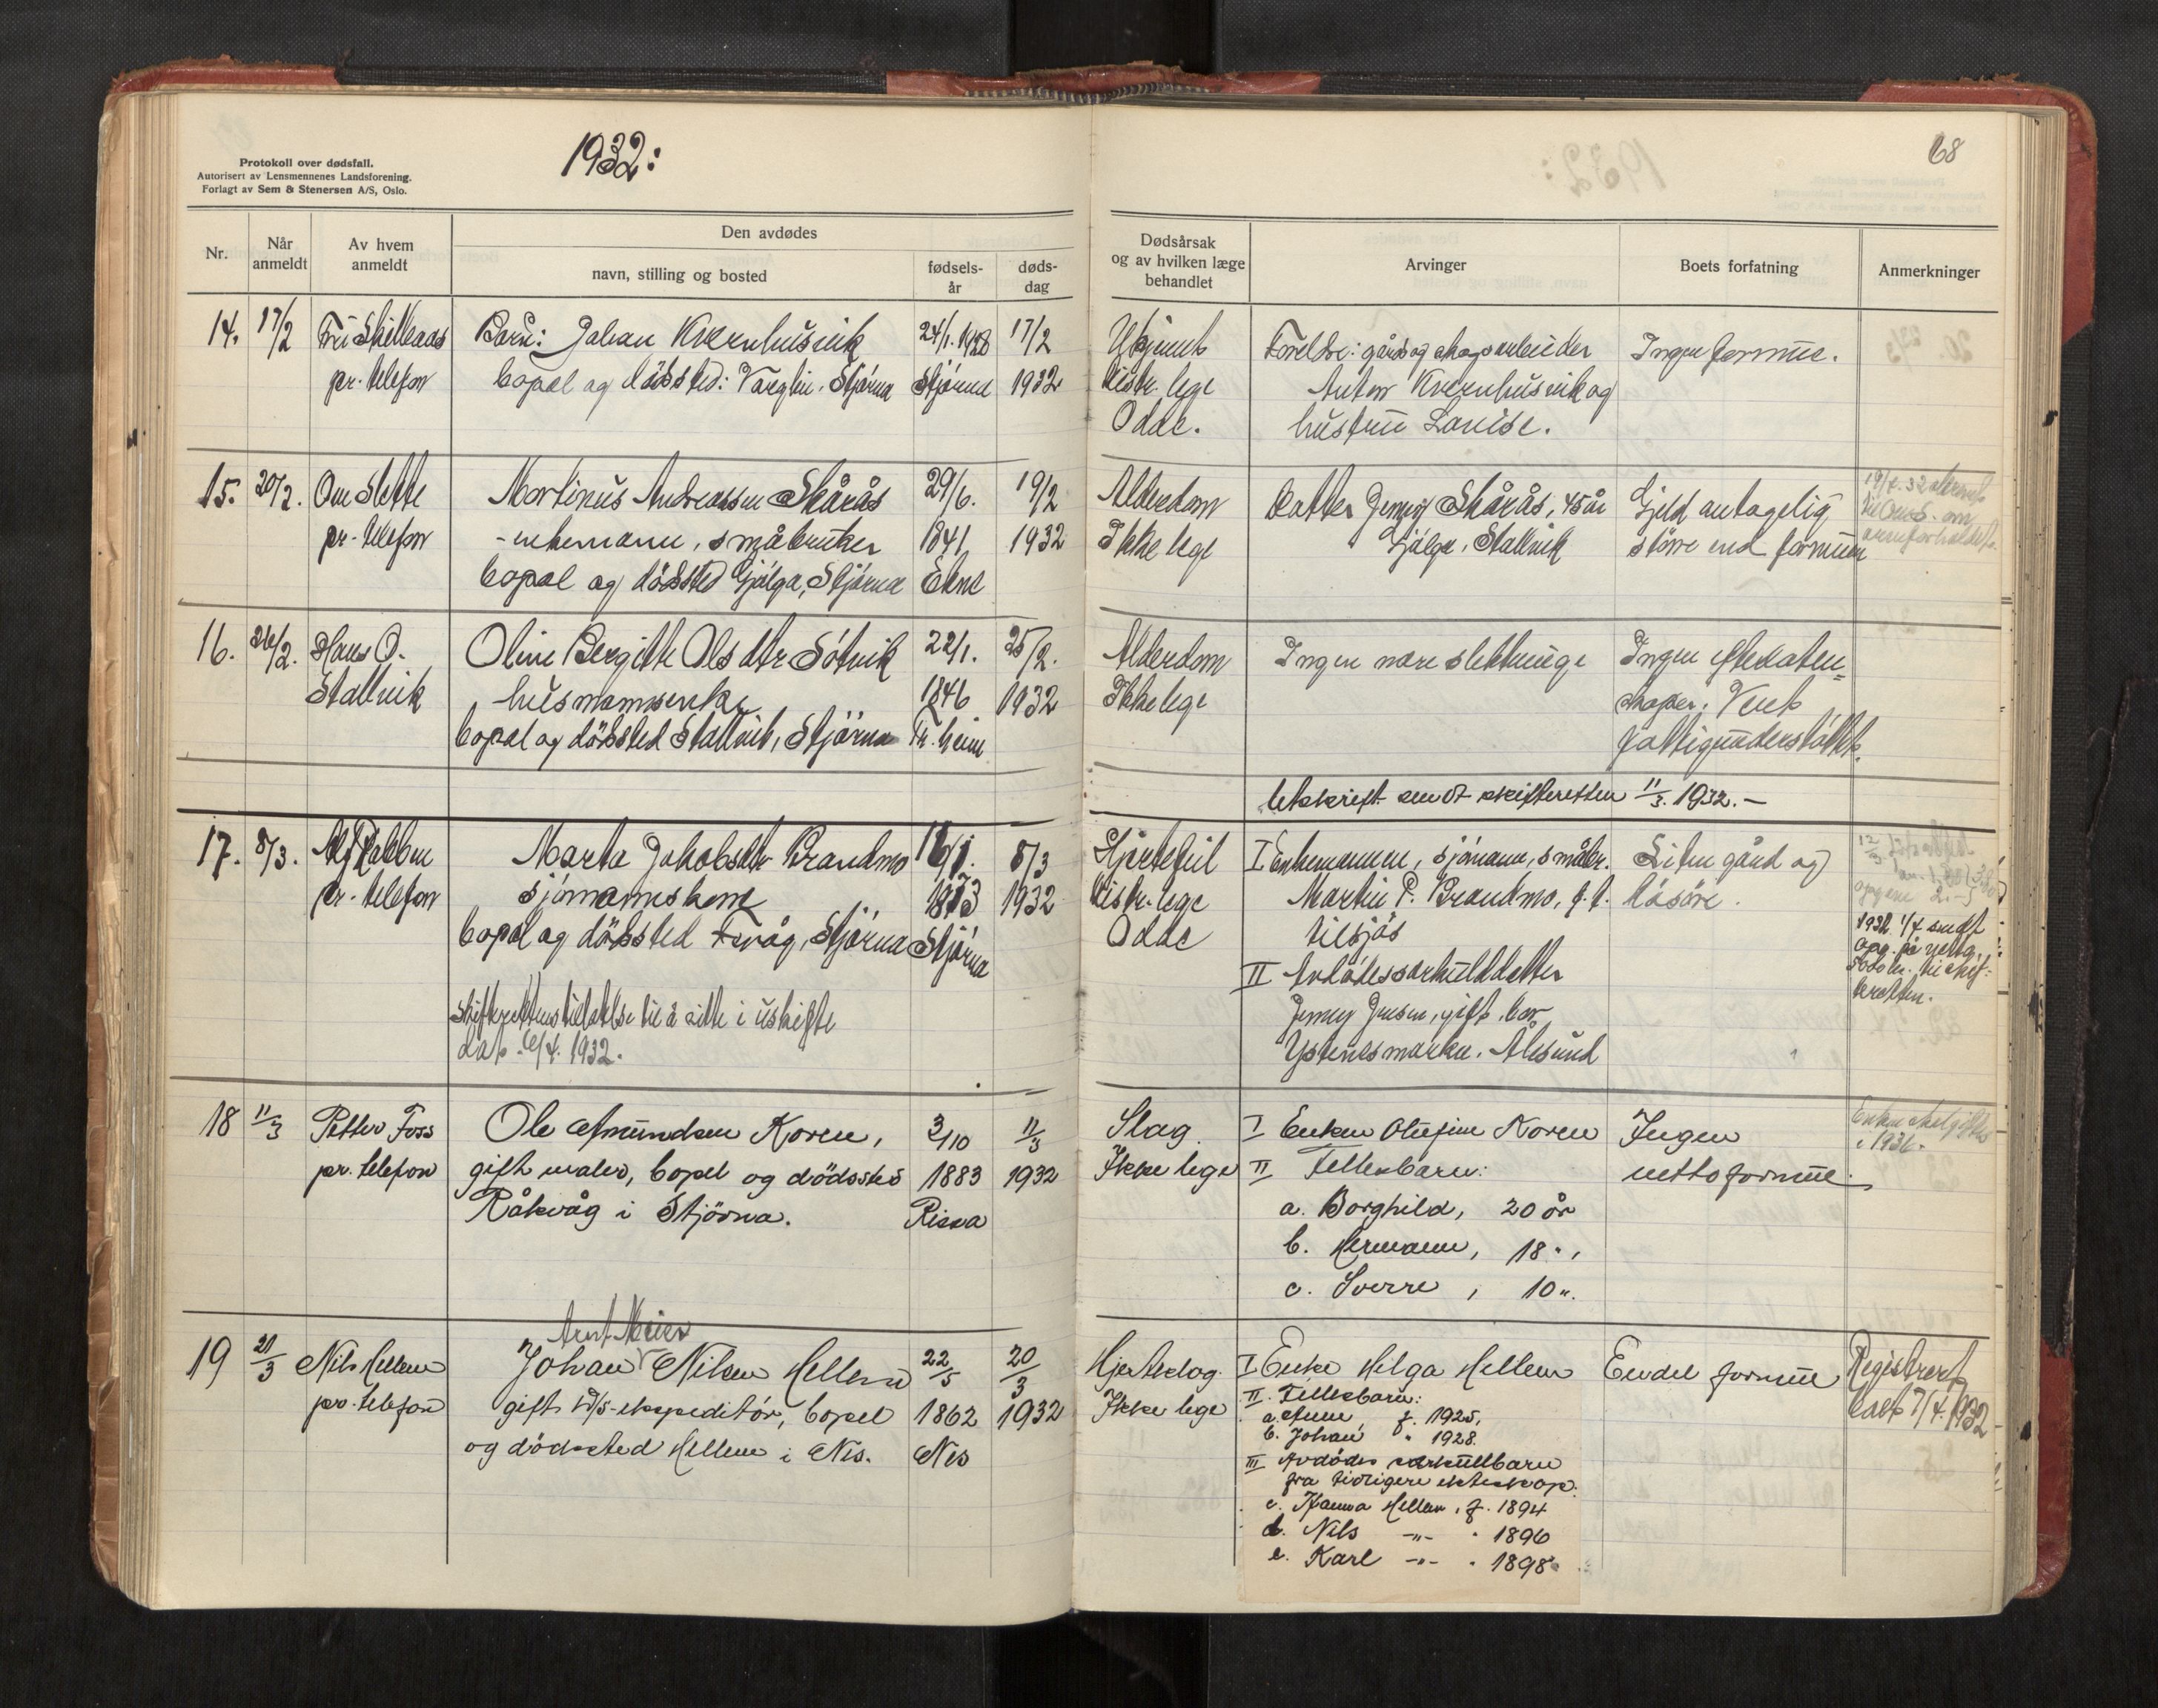 Protokoll over dødsfall.
Autorisert av Lensmennenes Landsforening.
Forlagt av Sem & Stenersen A/S, Oslo.
1932:
68
Nr.
Når anmeldt
Av hvem anmeldt
Den avdødes
navn, stilling og bosted
fødsels-år
døds-dag
Dødsårsak og av hvilken læge behandlet
Arvinger
Boets forfatning
Anmerkninger
14. 17/2
pr. telefon
Barn: Johan Kvernhusvik
bopel og dødssted: Stjørna
24/1. 1928
Stjørna
17/2
1932
Ukjent
Distr. lege
Odde.
Foreldre: gårds og skogsarbeider
Anton Kvernhusvik og
hustru Lovise.
Ingen formue.
15. 20/2. Ove Slette
pr. telefon
Martinus Andreassen Skårås
- enkemann, småbruker
bopel og dødssted Gjølga, Stjørna
29/6.
1841
Ekne
19/2
1932
Alderdom
Ikke lege
Datter Jenny Skårås, 45 år
Gjølga, Stallvik
Gjeld antagelig
større end formuen
16. 26/2. Hans O.
Stallvik
Oline Bergitte Olsdtr Søtvik
husmannsenke
bopel og dødssted Stallvik, Stjørna
22/1.
1846
Tr.heim
25/2.
1932
Alderdom
Ikke lege
Ingen nære slektninge
Ingen efterlaten=
skaper. Vent
fattigunderstøttet.
Utskrift sendt skifteretten 11/3. 1932.-
17. 8/3.
pr. telefon
Marta Jakobsdtr Brandmo
sjømannskone
bopel og dødssted Fevåg, Stjørna
1873
Stjørna
8/3
1932
Hjertefeil
Distr. lege
Odde
I Enkemannen, sjømann, småbr.
Martin P. Brandmo, f. t.
tilsjøs
II Avdødes særkulldatter
Jenny Jensen, gift, bor
Ålesund
Liten gård og
løsøre.
1932. 1/4 sendt
skifterettens tillatelse til å sitte i uskifte
dat. 6/4. 1932.
18 11/3 Petter Foss
pr. telefon
Ole Amundsen Koren,
gift maler, bopel og dødssted
Råkvåg i Stjörna.
3/10
1883
Rissa
11/3
1932
Slag
Ikke lege
I Enken Olufine Koren
II Fellesbarn:
a. Borghild, 20 år
b. Hermann, 18 "
c. Sverre, 10 ".
Ingen
nettoformue.
19 21/3 Nils Hellem
pr. telefon
Arnt Meier
Johan Nilsen Hellem
gift D/S-ekspeditør, bopel
og dödssted Hellem i Nes.
22/5
1862
Nes
20/3
1932
Hjerteslag.
Ikke lege
I Enke Helga Hellem
II. Fellesbarn:
a. Anne, f. 1925.
b. Johan " 1928.
III Avdødes særkullbarn
fra tidligere ekteskap.
c. Hanna Hellem, f. 1894
d. Nils -"- " 1896
e. Karl -"- " 1898
Endel formue
Registrert
dat 7/4. 1932